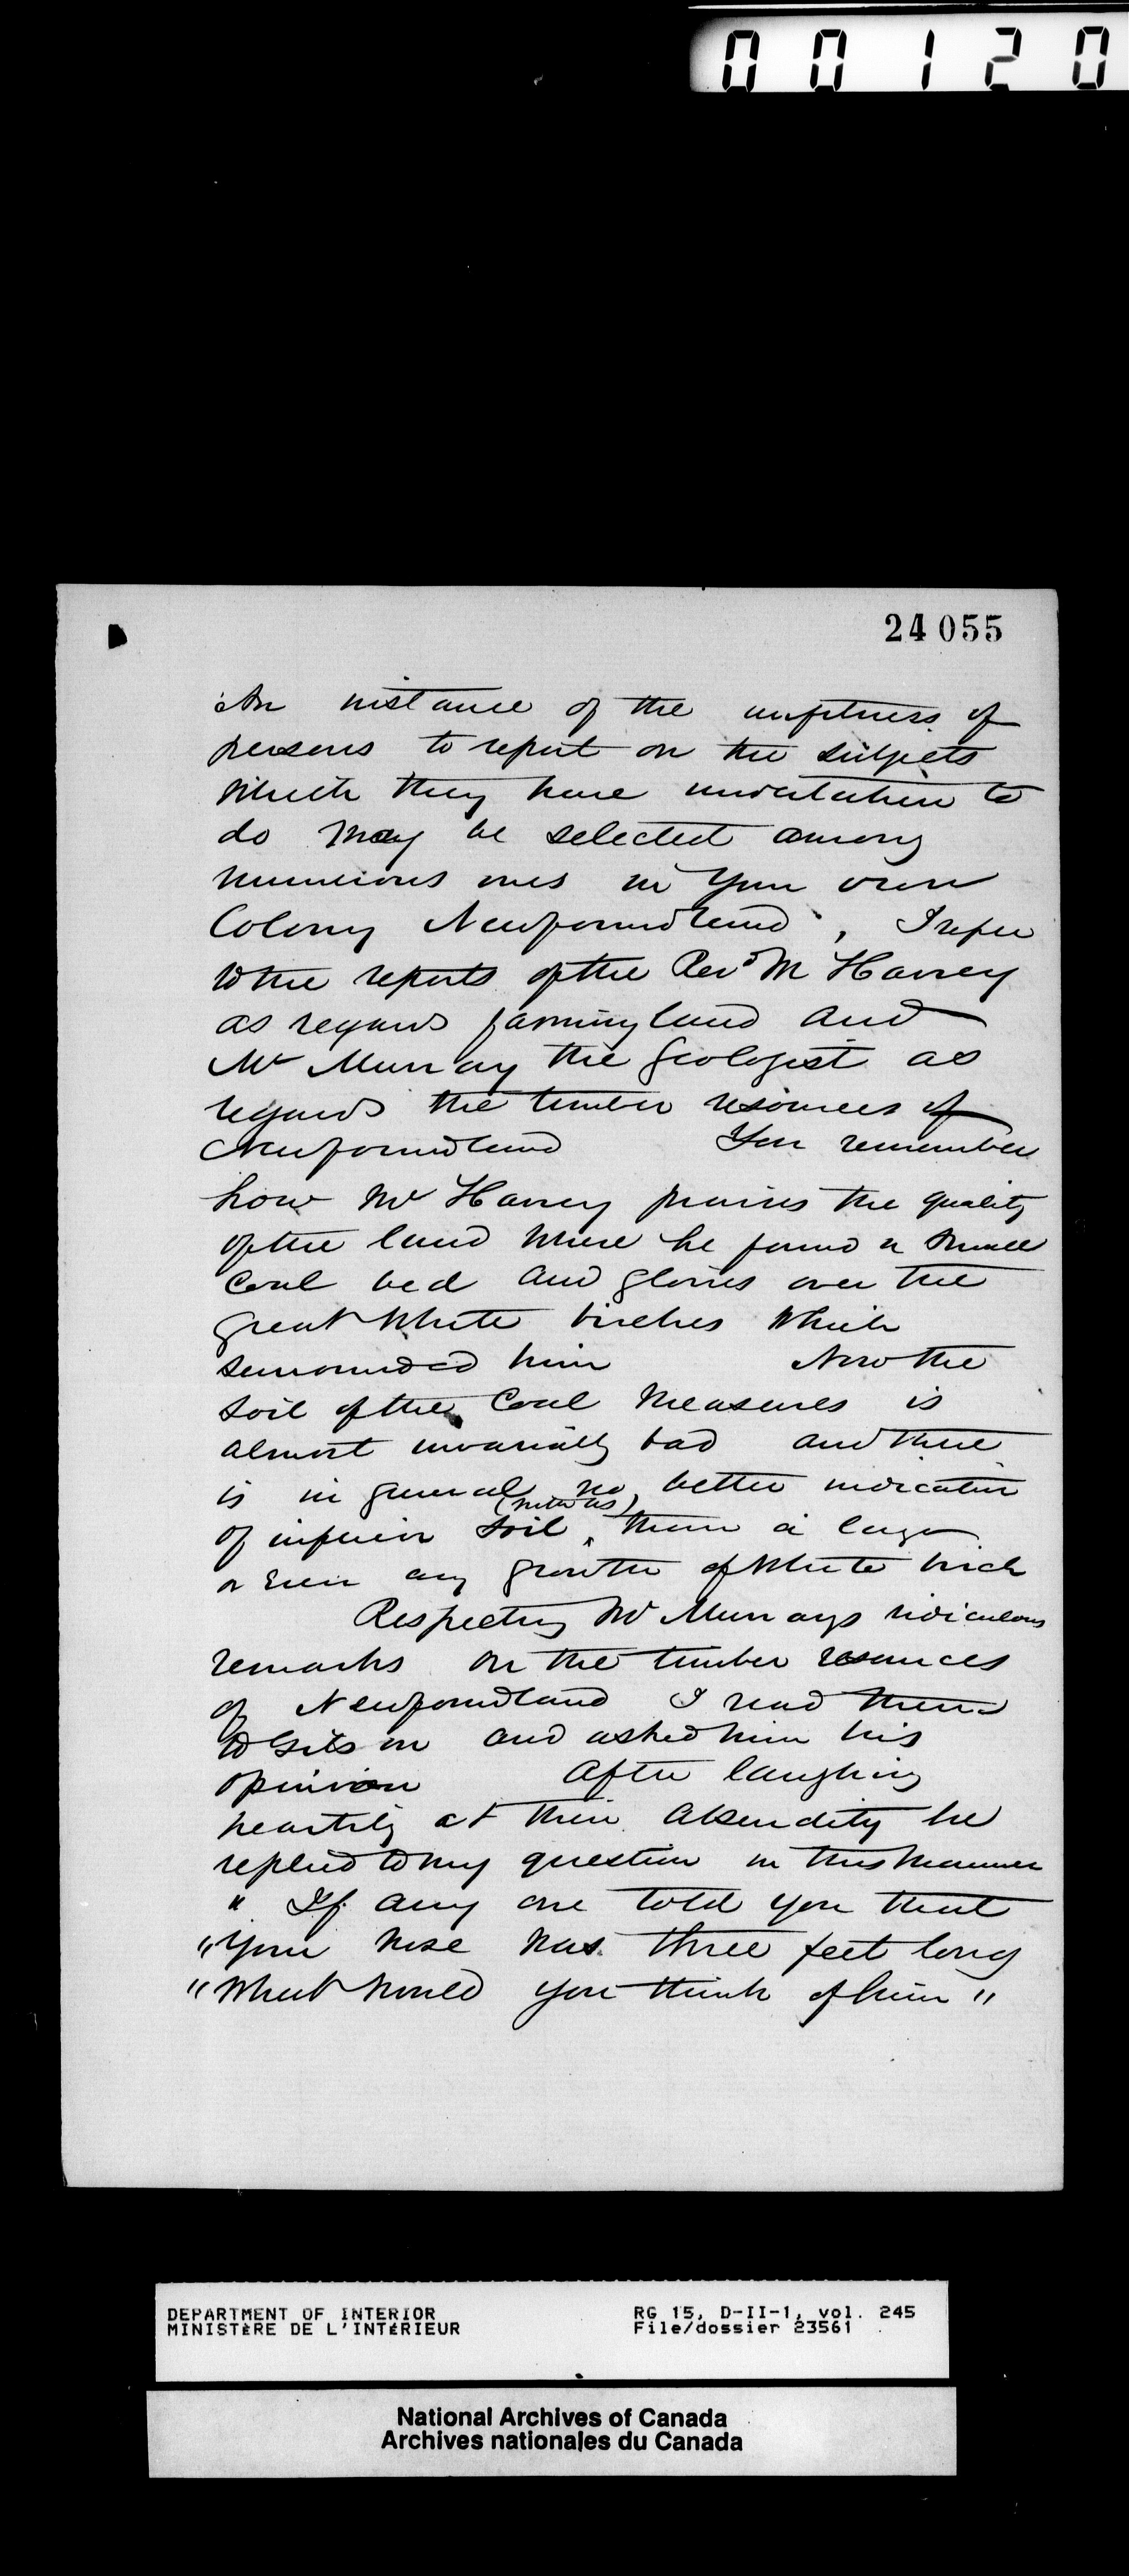 00120
24055
An instance of the unfitness of
persons to report on the subjects
which they have undertaken to
do may be selected among
numerous ones in your own
Colony Newfoundland, I refer
to the reports of the Revd M Harvey
as regards farming land and
Mr Murray the Geologist as
regards the timber resources of
Newfoundland You remember
how Mr Harvey praises the quality
of the land where he found a small
coal bed and glories over the
great White birches which
surrounded him Now the
soil of the Coal Measures is
almost invariably bad and there
is in general no better indication
of inferior soil than a large
or even any growth of White birch
Respecting Mr Murrays ridiculous
remarks on the timber resources
of Newfoundland I read them
to and asked him his
opinion After laughing
heartily at their absurdity he
replied to my question in this manner
" If any one told you that
"your nose was three feet long
"what would you think of him"
DEPARTMENT OF INTERIOR
MINISTÈRE DE L'INTÉRIEUR
RG 15, D-II-1, vol. 245
File/dossier 23561
National Archives of Canada
Archives nationales du Canada